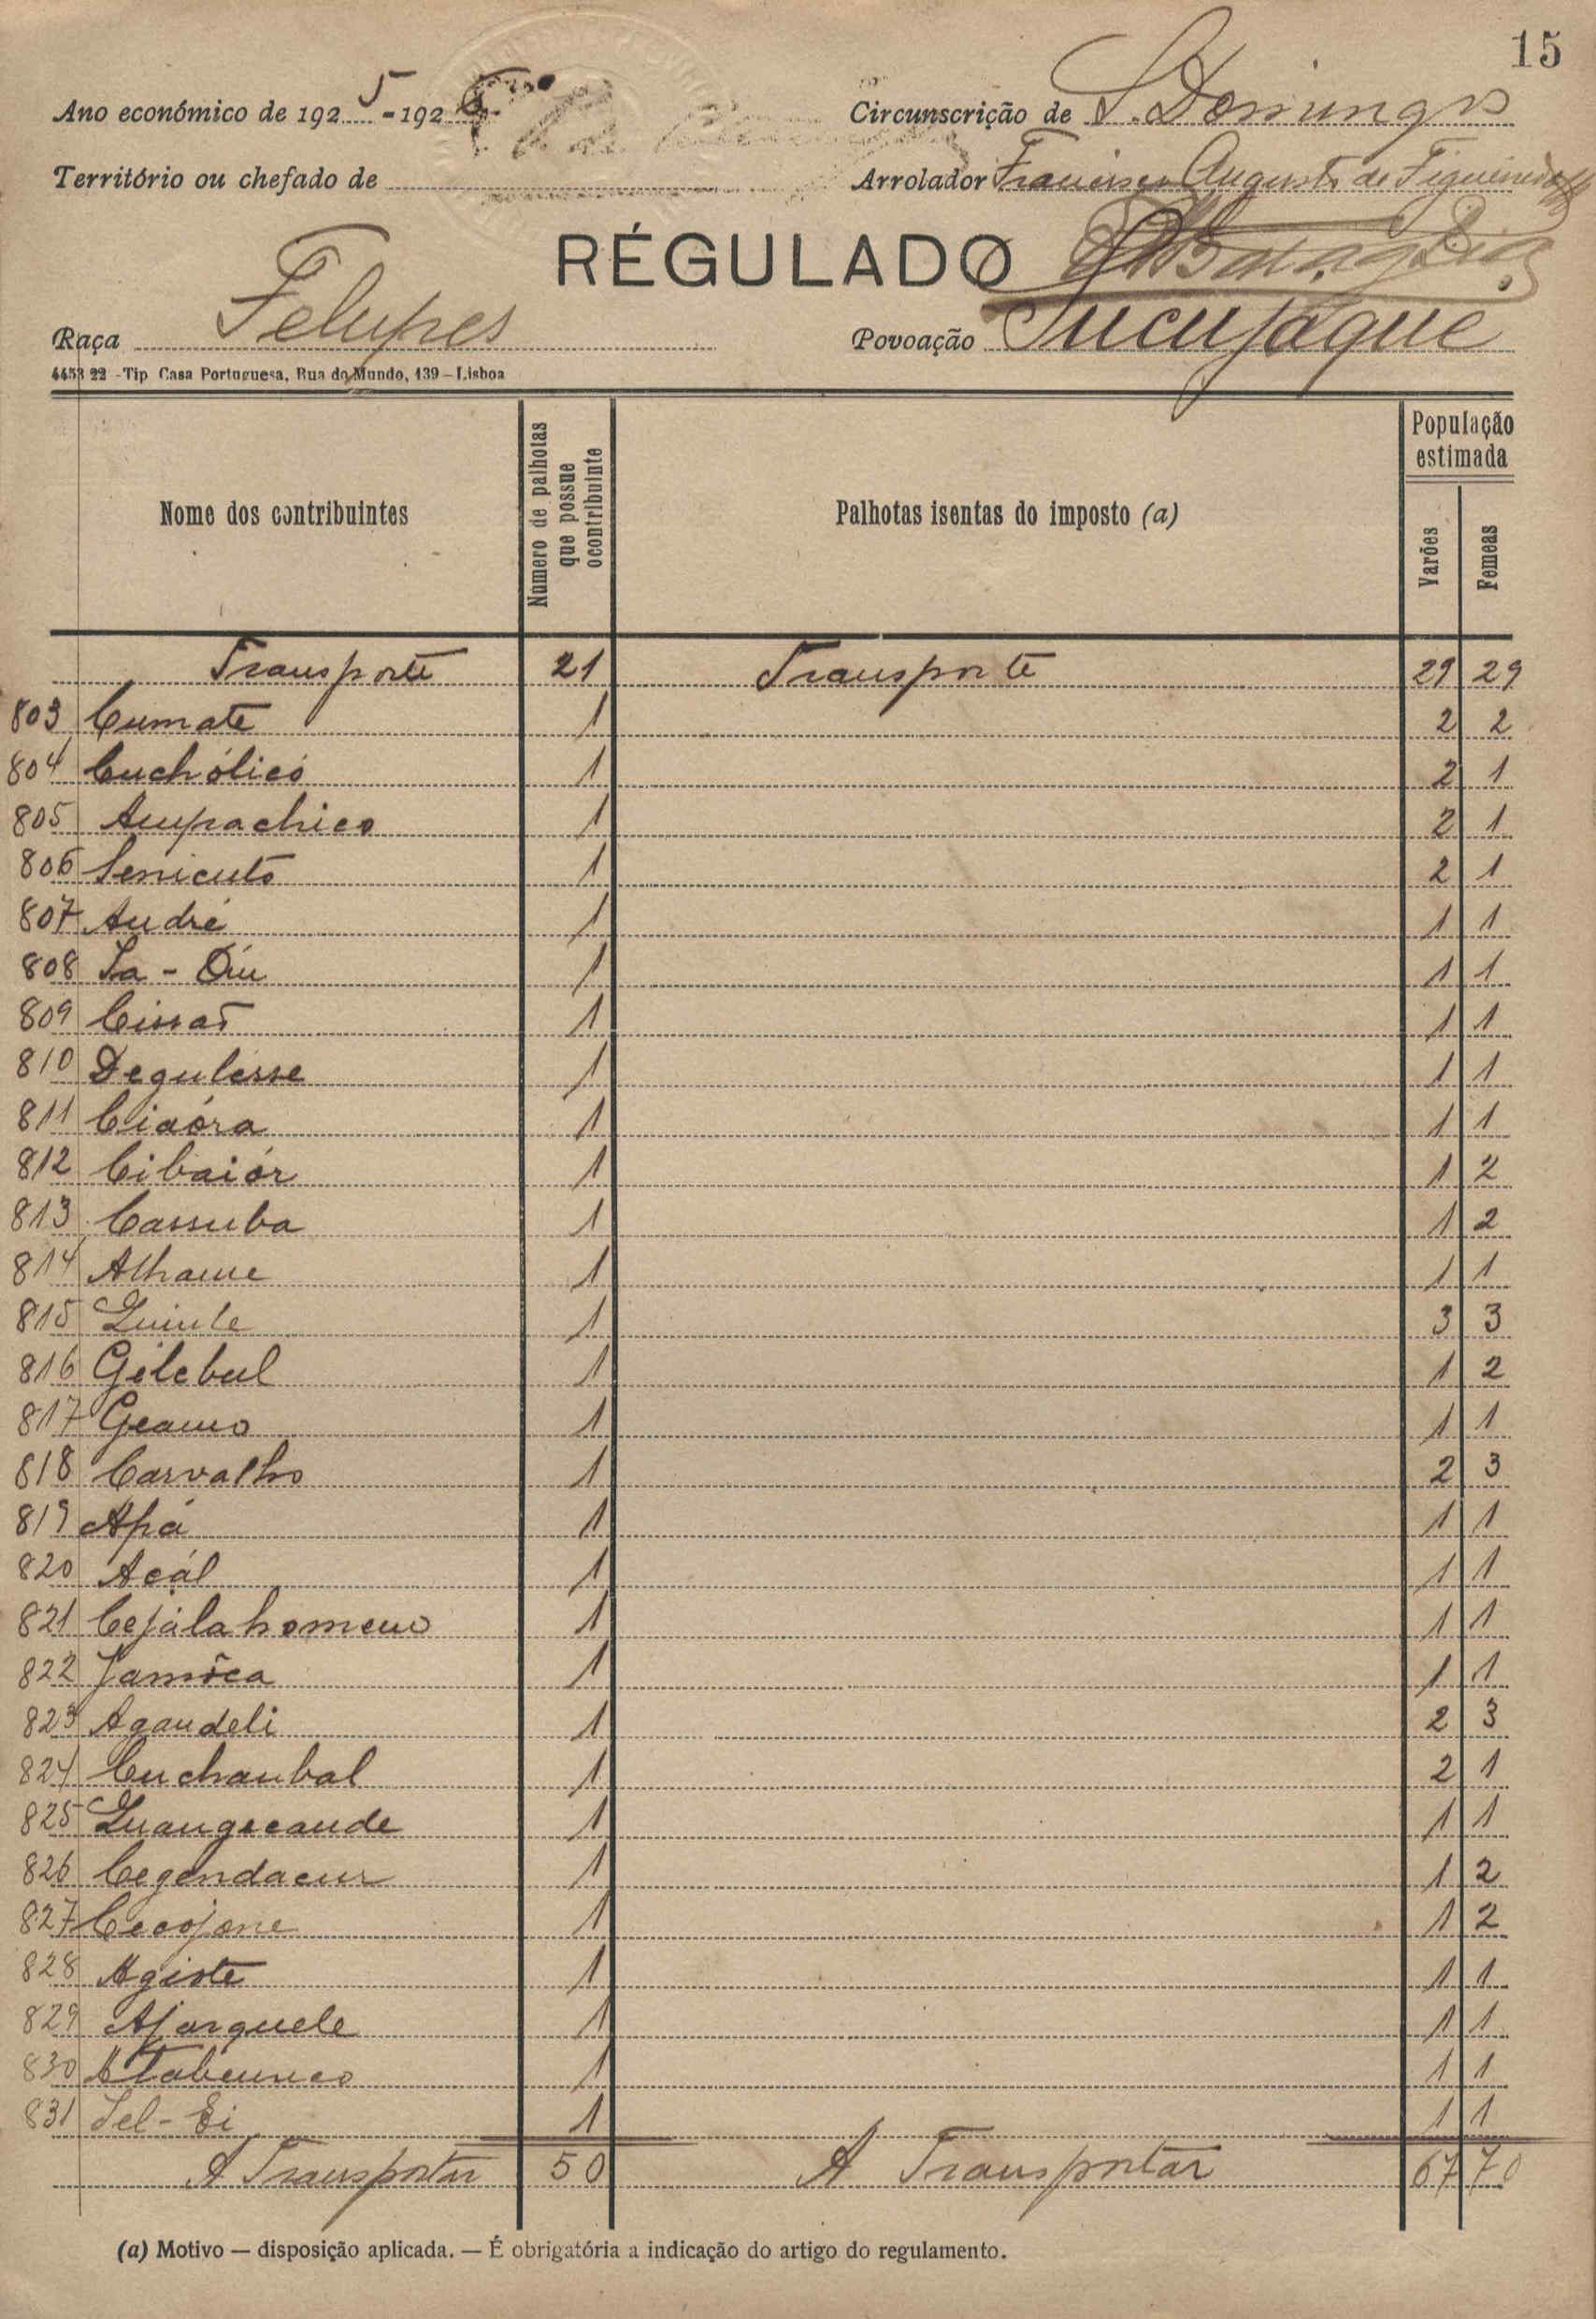 15
Ano económico de 1925-1926 Circunscrição de S. Domingos
Território ou chefado de Arrolador Francisco Augusto de Figueiredo
RÉGULADO
Raça Felupes Povoação Sucujáque
4453 22 - Tip Casa Portuguesa, Rua do Mundo, 139 - Lisboa
Nome dos contribuintes Número de palhotas que possue o contribuinte Palhotas isentas do imposto (a) População estimada Varões Femeas
Transporte 21 Transporte 29 29
803 Cumate 1 2 2
804 Cuchólicó 1 2 1
805 Ampachico 1 2 1
806 Senicuto 1 2 1
807 André 1 1 1
808 1 1 1
809 1 1 1
810 Degulesse 1 1 1
811 Ciaóra 1 1 1
812 Cibaiór 1 1 2
813 Cassuba 1 1 2
814 Alhame 1 1 1
815 1 3 3
816 Gilebul 1 1 2
817 Geamo 1 1 1
818 Carvalho 1 2 3
819 Apá 1 1 1
820 Acál 1 1 1
821 Cejálahomem 1 1 1
822 Jamôca 1 1 1
823 Agandeli 1 2 3
824 Cuchambal 1 2 1
825 1 1 1
826 Cegendacur 1 1 2
827 Cecojone 1 1 2
828 Agiste 1 1 1
829 Ajarquele 1 1 1
830 1 1 1
831 1 1 1
A Transportar 50 A Transportar 67 70
(a) Motivo — disposição aplicada. — É obrigatória a indicação do artigo do regulamento.